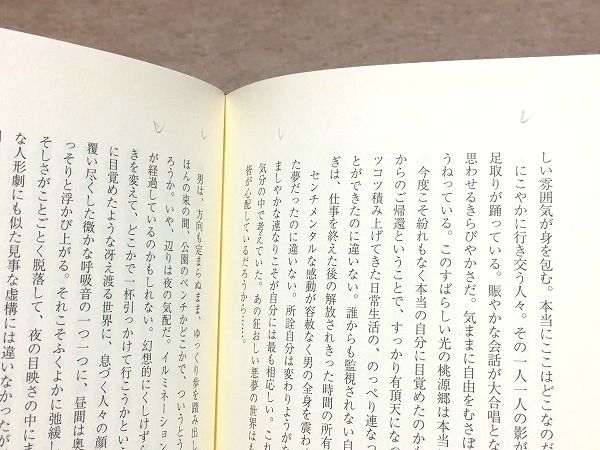 しい雰囲気が身を包む。本当にここはどこなのだ
にこやかに行き交う人々。その一人一人の影が
足取りが踊っている。賑やかな会話が大合唱とな
思わせるきらびやかさだ。気ままに自由をむさぼ
うねっている。このすばらしい光の桃源郷は本当
今度こそ紛れもなく本当の自分に目覚めたのか
からのご帰還ということで、すっかり有頂天になっ
ツコツ積み上げてきた日常生活の、のっぺり連なっ
とができたのに違いない。誰からも監視されない自
ぎは、仕事を終えた後の解放されきった時間の所有
センチメンタルな感動が容赦なく男の全身を震わ
た夢だったのに違いない。所詮自分は変わりようがな
ましやかな連なりこそが自分には最も相応しい。これ
気分の中で考えていた。あの狂おしい悪夢の世界はも
皆が心配しているだろうから……。
男は、方向も定まらぬまま、ゆっくり歩を踏み出し
ほんの束の間、公園のベンチかどこかで、ついうとう
ろうか。いや、辺りは夜の気配だ。イルミネーション
が経過しているのかもしれない。幻想的にくしけずら
きを変えて、どこかで一杯引っかけて行こうかとい
に目覚めたような冴え渡る世界に、息づく人々の顔
覆い尽くした微かな呼吸音の一つ一つに、昼間は奥
っそりと浮かび上がる。それこそふくよかに弛緩し
そしさがことごとく脱落して、夜の目映さの中にま
な人形劇にも似た見事な虚構には違いなかったが